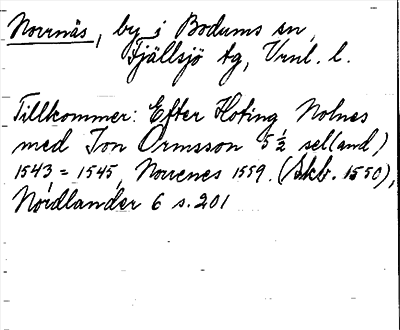 Norrnäs, by i Bodums sn,
Fjällsjö tg, Vrnl. l.
Tillkommer: Efter Hoting Nolnes
med Jon Ormsson 5½ sel(and)
1543 = 1545, Norrenes 1559. (Skb. 1550),
Nordlander 6 s. 201